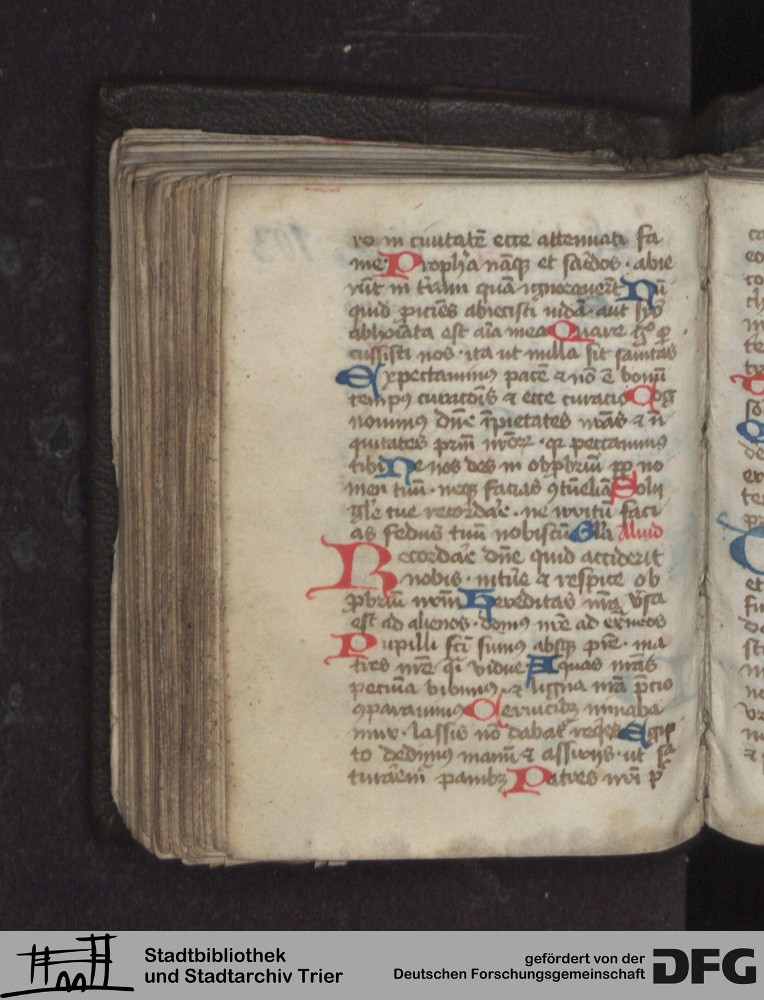 ro in ciuitatē ecce attenuati fa
me Propħa nāq̄ et sac̄dos · abie
rūt in t̄ram quā ignorauer̄t Nū
quid ꝓiciēs abiecisti iudā · aut syō
abhoīata est aīa mea Quare g̊ ꝑ
cussisti nos · ita ut nulla sit sanitas
Expectauimꝰ pacē ⁊ nō ē bonū
tempꝰ curacōis ⁊ ecce turacio Cog
nouimꝰ dn̄e īpietates nr̄as ⁊ īi
quitates prm̄ nr̄oꝝ · qꝛ peccauimꝰ
tibi Ne nos des in obꝓbriū ꝓp no
men tuū · neqꝫ facias ꝯtūeliā Solij
gl̄e tue recordar̄ · ne irritū faci
as fedus tuū nobiscū Gl̄a Aliud
Recordar̄ dn̄e quid acciderit
nobis · intue ⁊ respice ob
ꝓbriū nr̄m Hereditas nr̄a v̄sa
est ad alienos · domꝰ nr̄e ad ext̄neos
Pupilli fc̄i sumꝰ absqꝫ pr̄e · ma
tres nr̄e q̄i vidue Aquas nr̄as
pecunia bibimꝰ · ⁊ ligna nr̄a p̄cio
ꝯparauimꝰ Ceruicibꝫ minaba
mur · lassis nō dabat͛ reqͥes Egip
to dedimꝰ manū ⁊ assirijs · ut sa
turarem̄ panibꝫ Patres nr̄i p̄
Stadtbibliothek
und Stadtarchiv Trier
gefördert von der
Deutschen Forschungsgemeinschaft
DFG